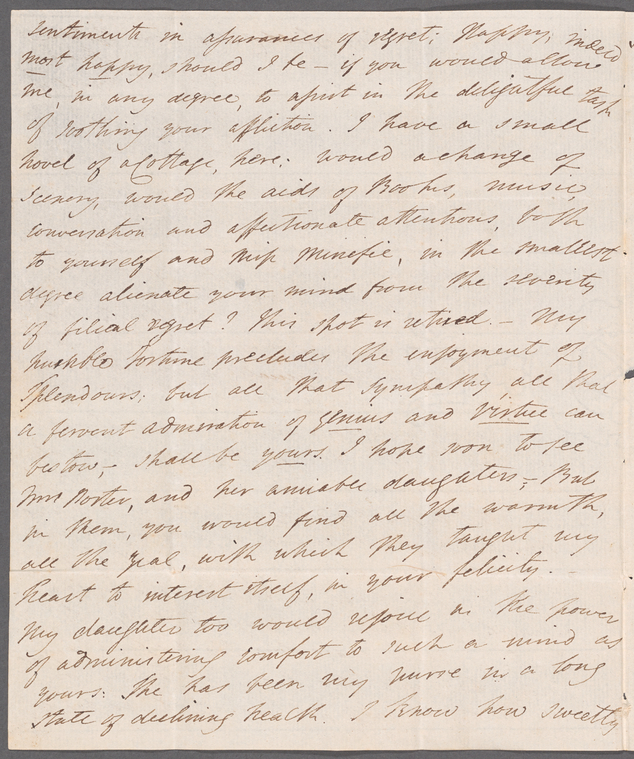 sentiments in assurances of regret; Happy, indeed
most happy, should I be – if you would allow
me, in any degree, to assist in the delightful task
of soothing your affliction. I have a small
hovel of a Cottage, here: would a change of
Scenery, would the aids of Books, music,
conversation and affectionate attentions, both
to yourself and Miss Minefie, in the smallest
degree alienate your mind from the severity
of filial regret? This spot is retired. – My
humble fortune precludes the enjoyment of
Splendours; but all that sympathy all that
a fervent admiration of genius and Virtue can
bestow, – shall be yours. I hope soon to see
Mrs Porter, and her amiable daughters; – But
in them, you would find all the warmth,
all the zeal, with which they taught my
heart to interest itself, in your felicity. –
My daughter too would rejoice in the power
of administering comfort to such a mind as
yours: She has been my nurse in a long
state of declining health. I know how sweetly